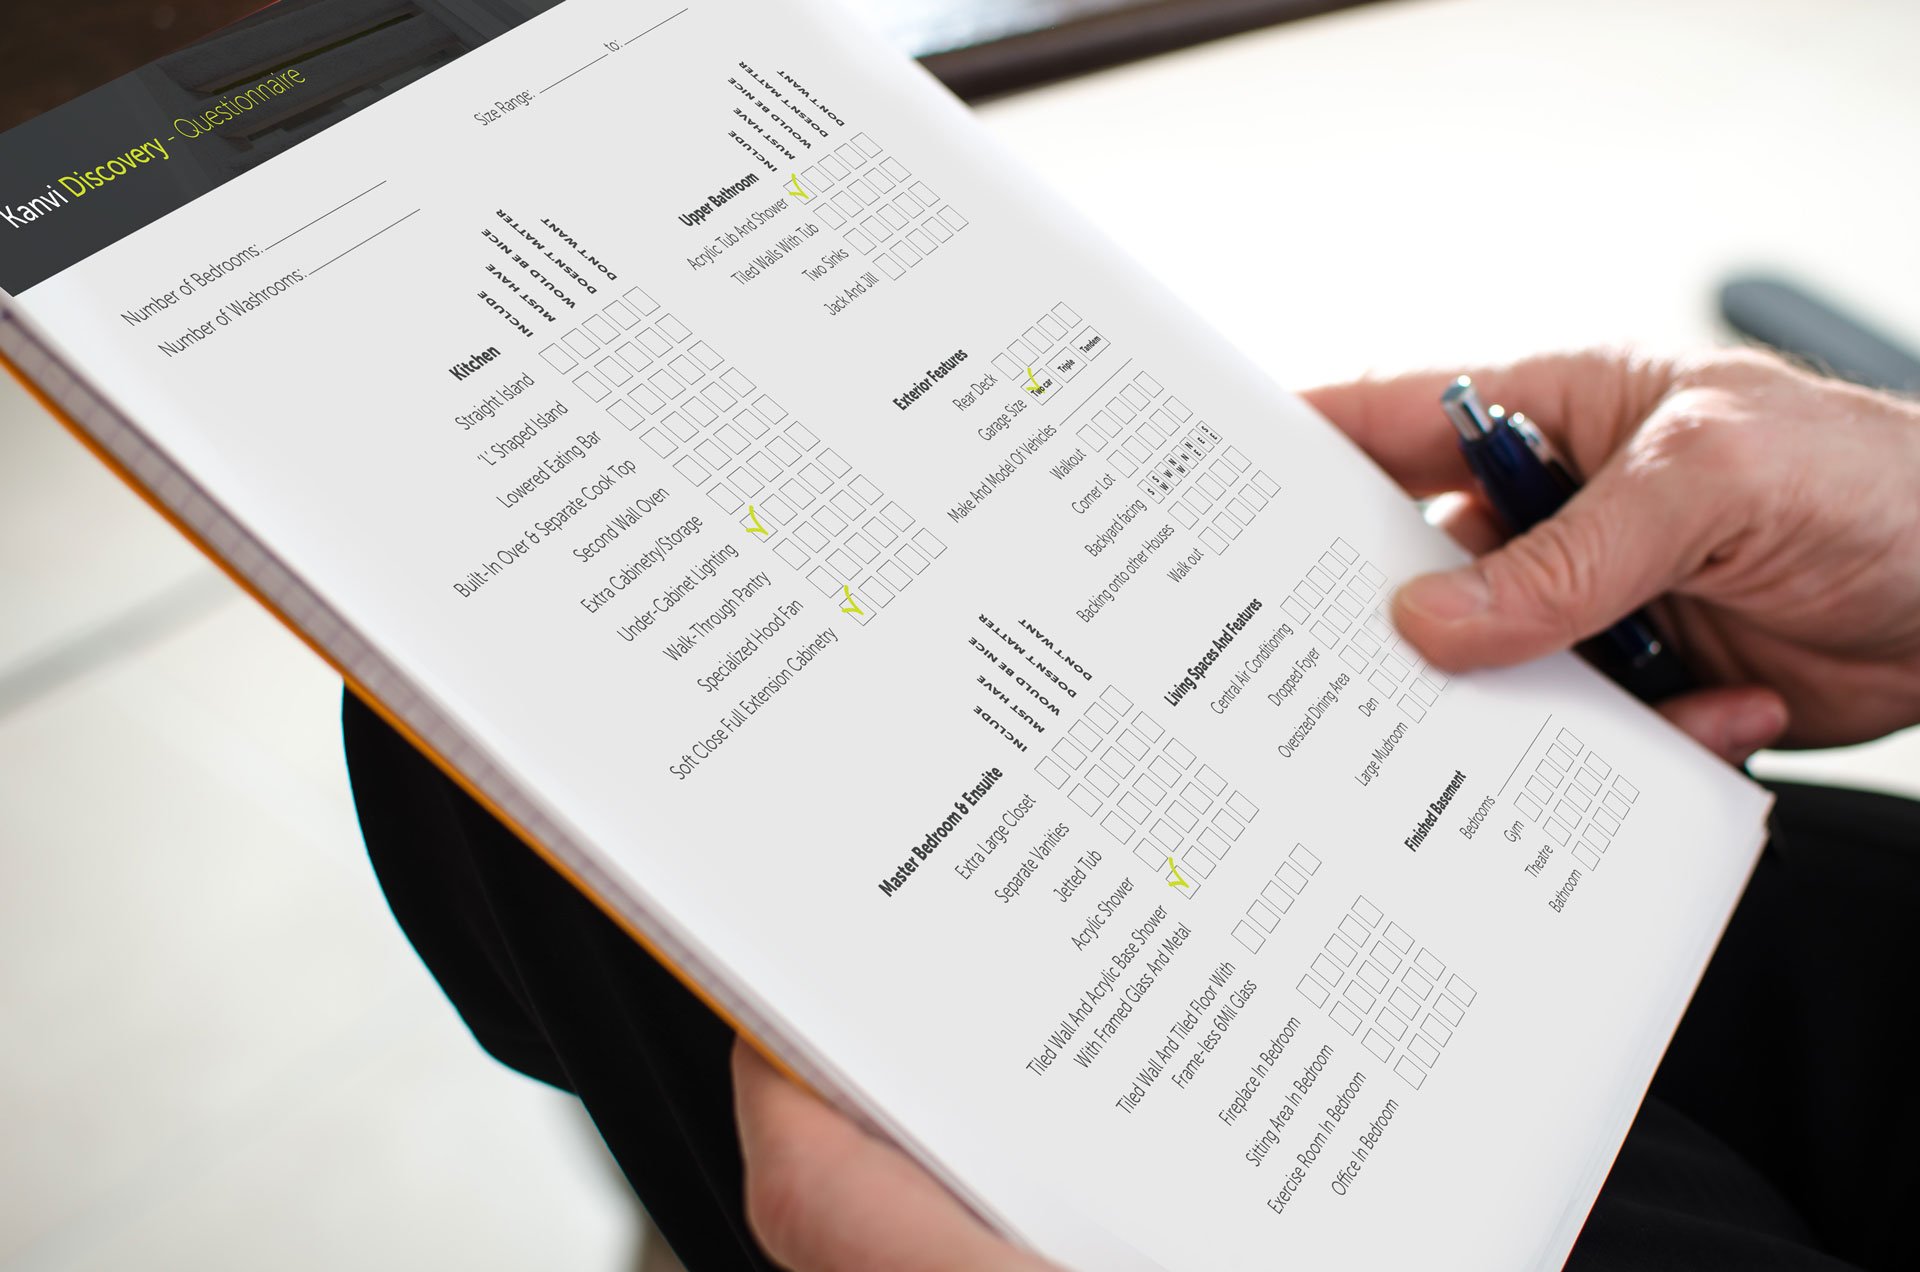 Kanvi Discovery - Questionnaire
Number of Bedrooms:
Number of Washrooms:
Size Range: to:
Kitchen
INCLUDE
MUST HAVE
WOULD BE NICE
DOESN'T MATTER
DON'T WANT
Straight Island
'L' Shaped Island
Lowered Eating Bar
Built-In Over & Separate Cook Top
Second Wall Oven
Extra Cabinetry/Storage
Under-Cabinet Lighting
Walk-Through Pantry
Specialized Hood Fan
Soft Close Full Extension Cabinetry
Upper Bathroom
INCLUDE
MUST HAVE
WOULD BE NICE
DOESN'T MATTER
DON'T WANT
Acrylic Tub And Shower
Tiled Walls With Tub
Two Sinks
Jack And Jill
Exterior Features
Rear Deck
Garage Size Two car Triple Tandem
Make And Model Of Vehicles
Walkout
Corner Lot
Backyard facing S SW W NW N NE E SE
Backing onto other Houses
Walk out
Master Bedroom & Ensuite
INCLUDE
MUST HAVE
WOULD BE NICE
DOESN'T MATTER
DON'T WANT
Extra Large Closet
Separate Vanities
Jetted Tub
Acrylic Shower
Tiled Wall And Acrylic Base Shower
With Framed Glass And Metal
Tiled Wall And Tiled Floor With
Frame-less 6Mil Glass
Fireplace In Bedroom
Sitting Area In Bedroom
Exercise Room In Bedroom
Office In Bedroom
Living Spaces And Features
Central Air Conditioning
Dropped Foyer
Oversized Dining Area
Den
Large Mudroom
Finished Basement
Bedrooms
Gym
Theatre
Bathroom